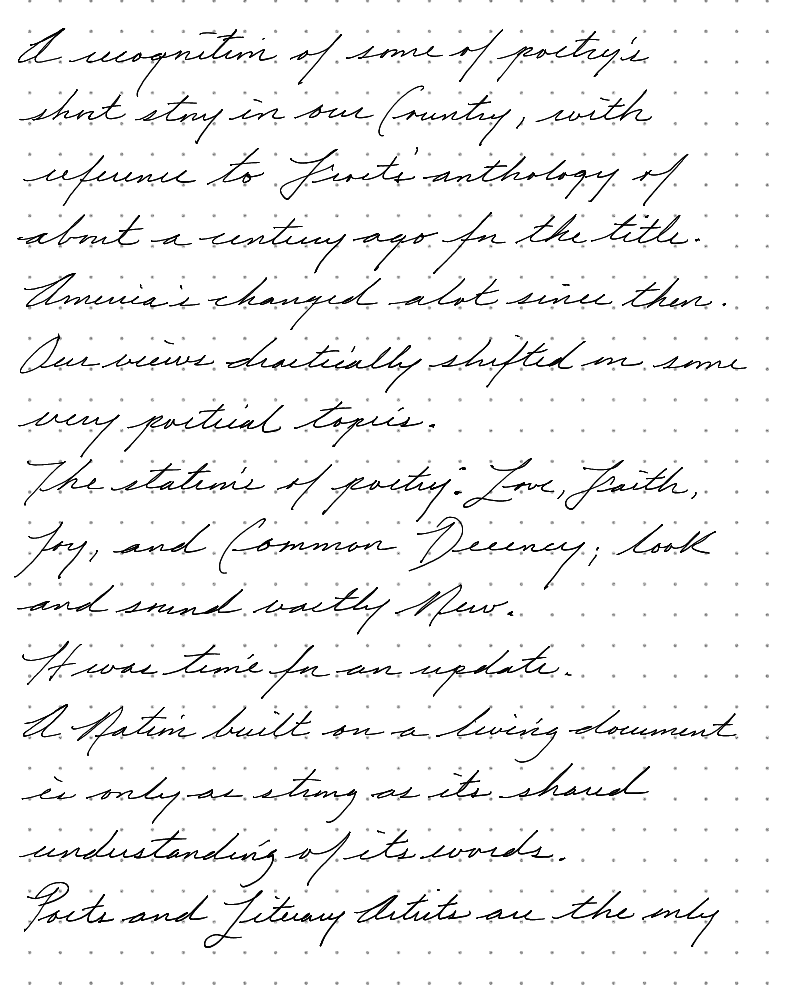 A recognition of some of poetry's
short story in our Country, with
reference to Frost's anthology of
about a century ago for the title.
America's changed alot since then.
Our views drastically shifted on some
very poetical topics.
The station's of poetry: Love, Faith,
Joy, and Common Decency; look
and sound vastly New.
It was time for an update.
A Nation built on a living document
is only as strong as its shared
understanding of its words.
Poets and Literary Artists are the only